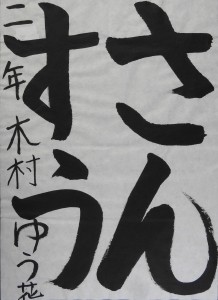 さん
すう
二年 木村ゆう花